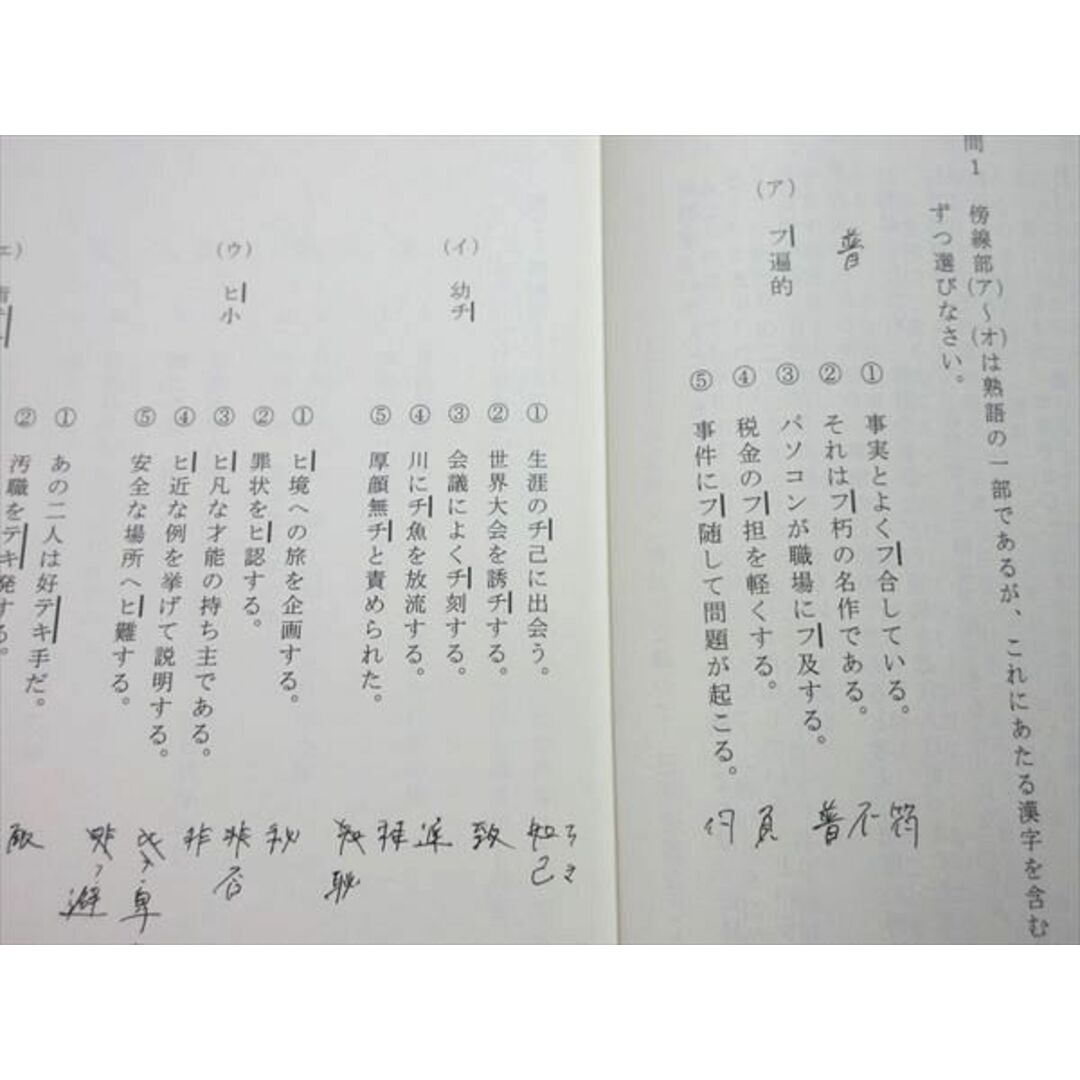 問1 傍線部(ア)～(オ)は熟語の一部であるが、これにあたる漢字を含む
ずつ選びなさい。
(ア) フ遍的
普
① 事実とよくフ合している。
② それはフ朽の名作である。
③ パソコンが職場にフ及する。
④ 税金のフ担を軽くする。
⑤ 事件にフ随して問題が起こる。
符
不
普
負
付
(イ) 幼チ
① 生涯のチ己に出会う。
② 世界大会を誘チする。
③ 会議によくチ刻する。
④ 川にチ魚を放流する。
⑤ 厚顔無チと責められた。
知己
致
稚
恥
(ウ) ヒ小
① ヒ境への旅を企画する。
② 罪状をヒ認する。
③ ヒ凡な才能の持ち主である。
④ ヒ近な例を挙げて説明する。
⑤ 安全な場所へヒ難する。
秘
否
非
卑
避
(エ)
① あの二人は好テキ手だ。
② 汚職をテキ発する。
敵